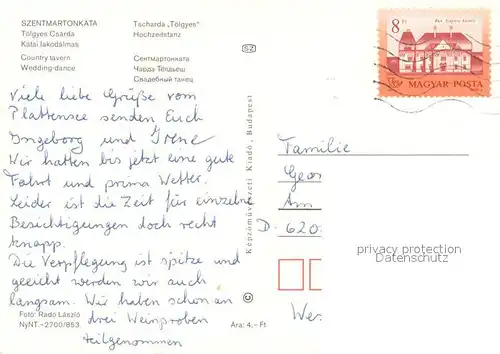 SZENTMARTONKATA
Tölgyes Csárda
Kátai lakodalmas
Country tavern
Wedding-dance
Tscharda „Tölgyes"
Hochzeitstanz
Сентмартонката
Чарда Тёлдьеш
Свадебный танец
SZ
8 Ft
MAGYAR POSTA
Viele liebe Grüße vom
Plattensee senden Euch
Ingeborg und Irene
Wir hatten bis jetzt eine gute
Fahrt und prima Wetter.
Leider ist die Zeit für einzelne
Besichtigungen doch recht
knapp.
Die Verpflegung ist spitze und
geeicht werden wir auch
langsam. Wir haben schon an
drei Weinproben
teilgenommen
Fotó: Radó László
NyNT.–2700/853.
Ára: 4,– Ft
Képzőművészeti Kiadó, Budapest
©
Familie
Geor
Am
D-620
We
privacy protection
Datenschutz